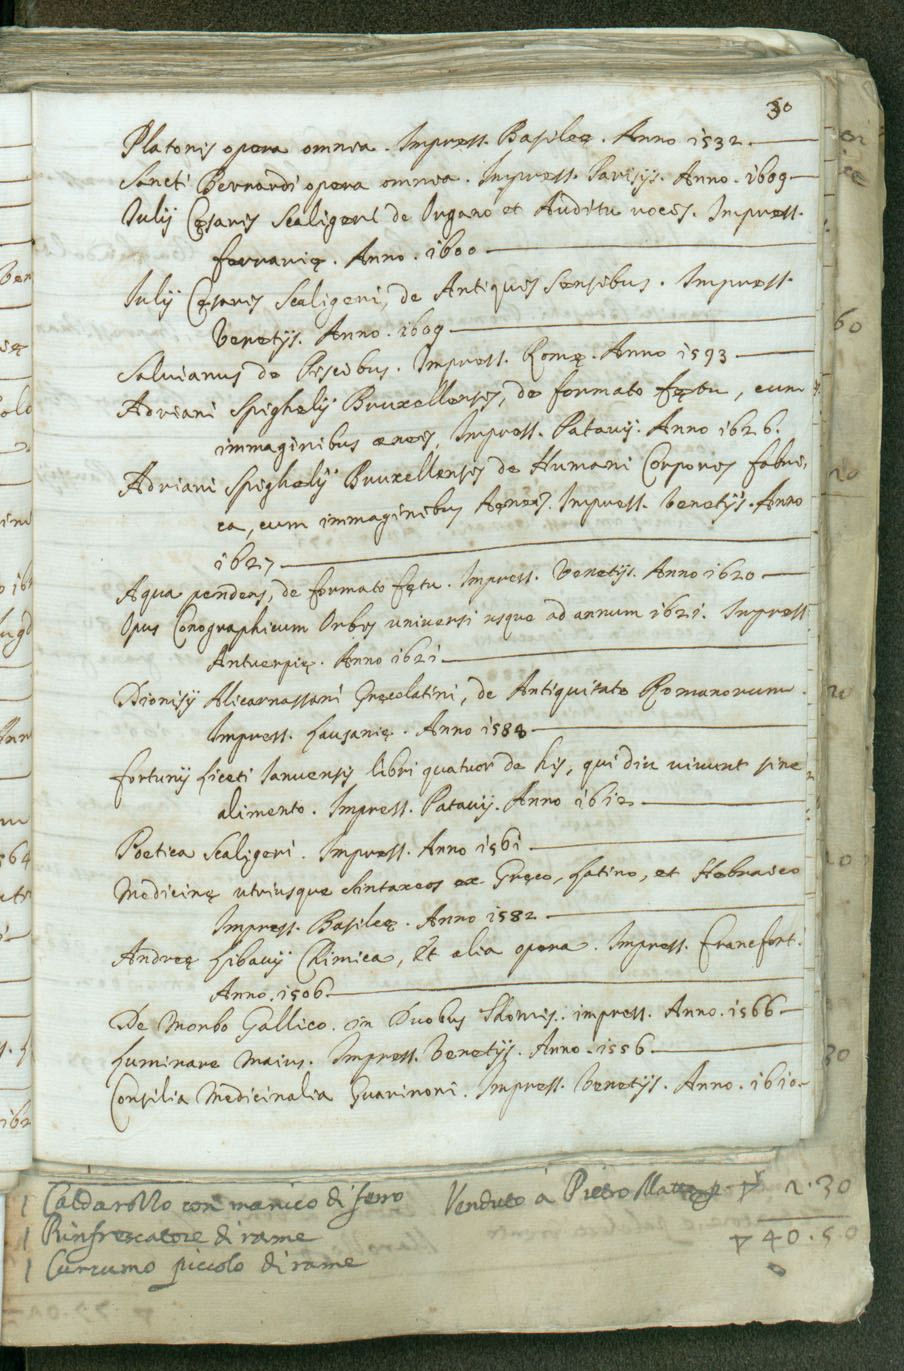 30
Platonis opera omnia. Impress. Basileę. Anno 1532.
Sancti Bernardi opera omnia. Impress. Parisijs. Anno. 1609
Iulij Cęsaris Scaligeri de Organo et Auditu vocis. Impress.
ferrarię. Anno. 1600
Iulij Cęsaris Scaligeri, de Antiquis Sensibus. Impress.
Venetijs. Anno. 1609
Salvianus de Piscibus. Impress. Romę. Anno 1593
Adriani Spighelij Bruxellensis, de formato fętu, cum
immaginibus ęneis, Impress. Patavij. Anno 1626.
Adriani Spighelij Bruxellensis de Humani Corporis fabri,
ca, cum immaginibus Aęneis. Impress. Venetijs. Anno
1627
Aqua pendens, de formato fętu. Impress. Venetijs. Anno 1620
Opus Conographicum Orbis universi usque ad annum 1621. Impress
Antuerpię. Anno 1621
Dionisij Alicarnassani Gręcolatini, de Antiquitate Romanorum.
Impress. Lausanię. Anno 1588
fortunij Liceti Ianuensis libri quatuor de his, qui diu vivunt sine
alimento. Impress. Patavij. Anno 1612
Poetica Scaligeri. Impress. Anno 1561
Medicinę utriusque Sintaxeos ex Gręco, Latino, et Hebraico
Impress. Basileę. Anno 1582
Andreę Libavij Chimica, Et alia opera. Impress. Francfort.
Anno. 1506
De Morbo Gallico. in Duobus Thomis. impress. Anno. 1566
Luminare Maius. Impress. Venetijs. Anno. 1556
Consilia Medicinalia Guarinoni. Impress. Venetijs. Anno. 1610
1 Caldarozzo con manico di ferro Venduto à Pietro 2.30
1 Rinfrescatore di rame 40.50
1 Curcumo piccolo di rame